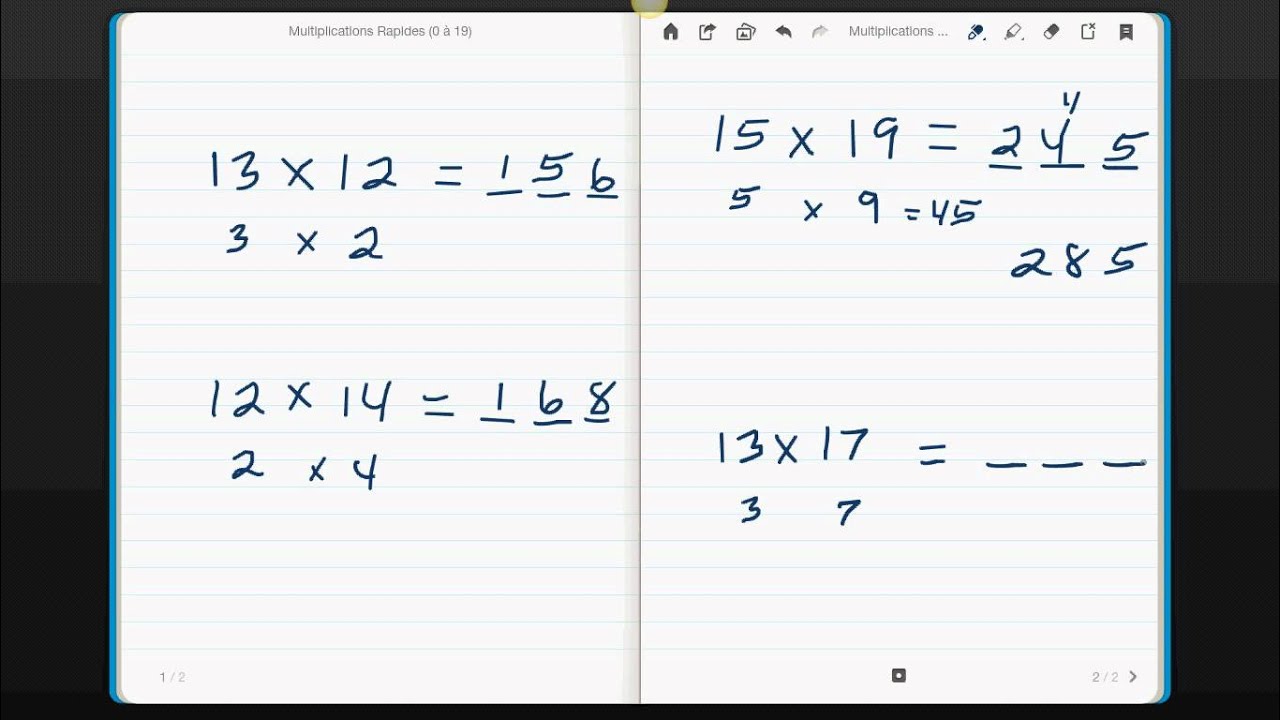 Multiplications Rapides (0 à 19)
13 x 12 = 1 5 6
3 x 2
12 x 14 = 1 6 8
2 x 4
1 / 2
Multiplications ...
4
15 x 19 = 2 4 5
5 x 9 = 45
2 8 5
13 x 17 = _ _ _
3 7
2 / 2